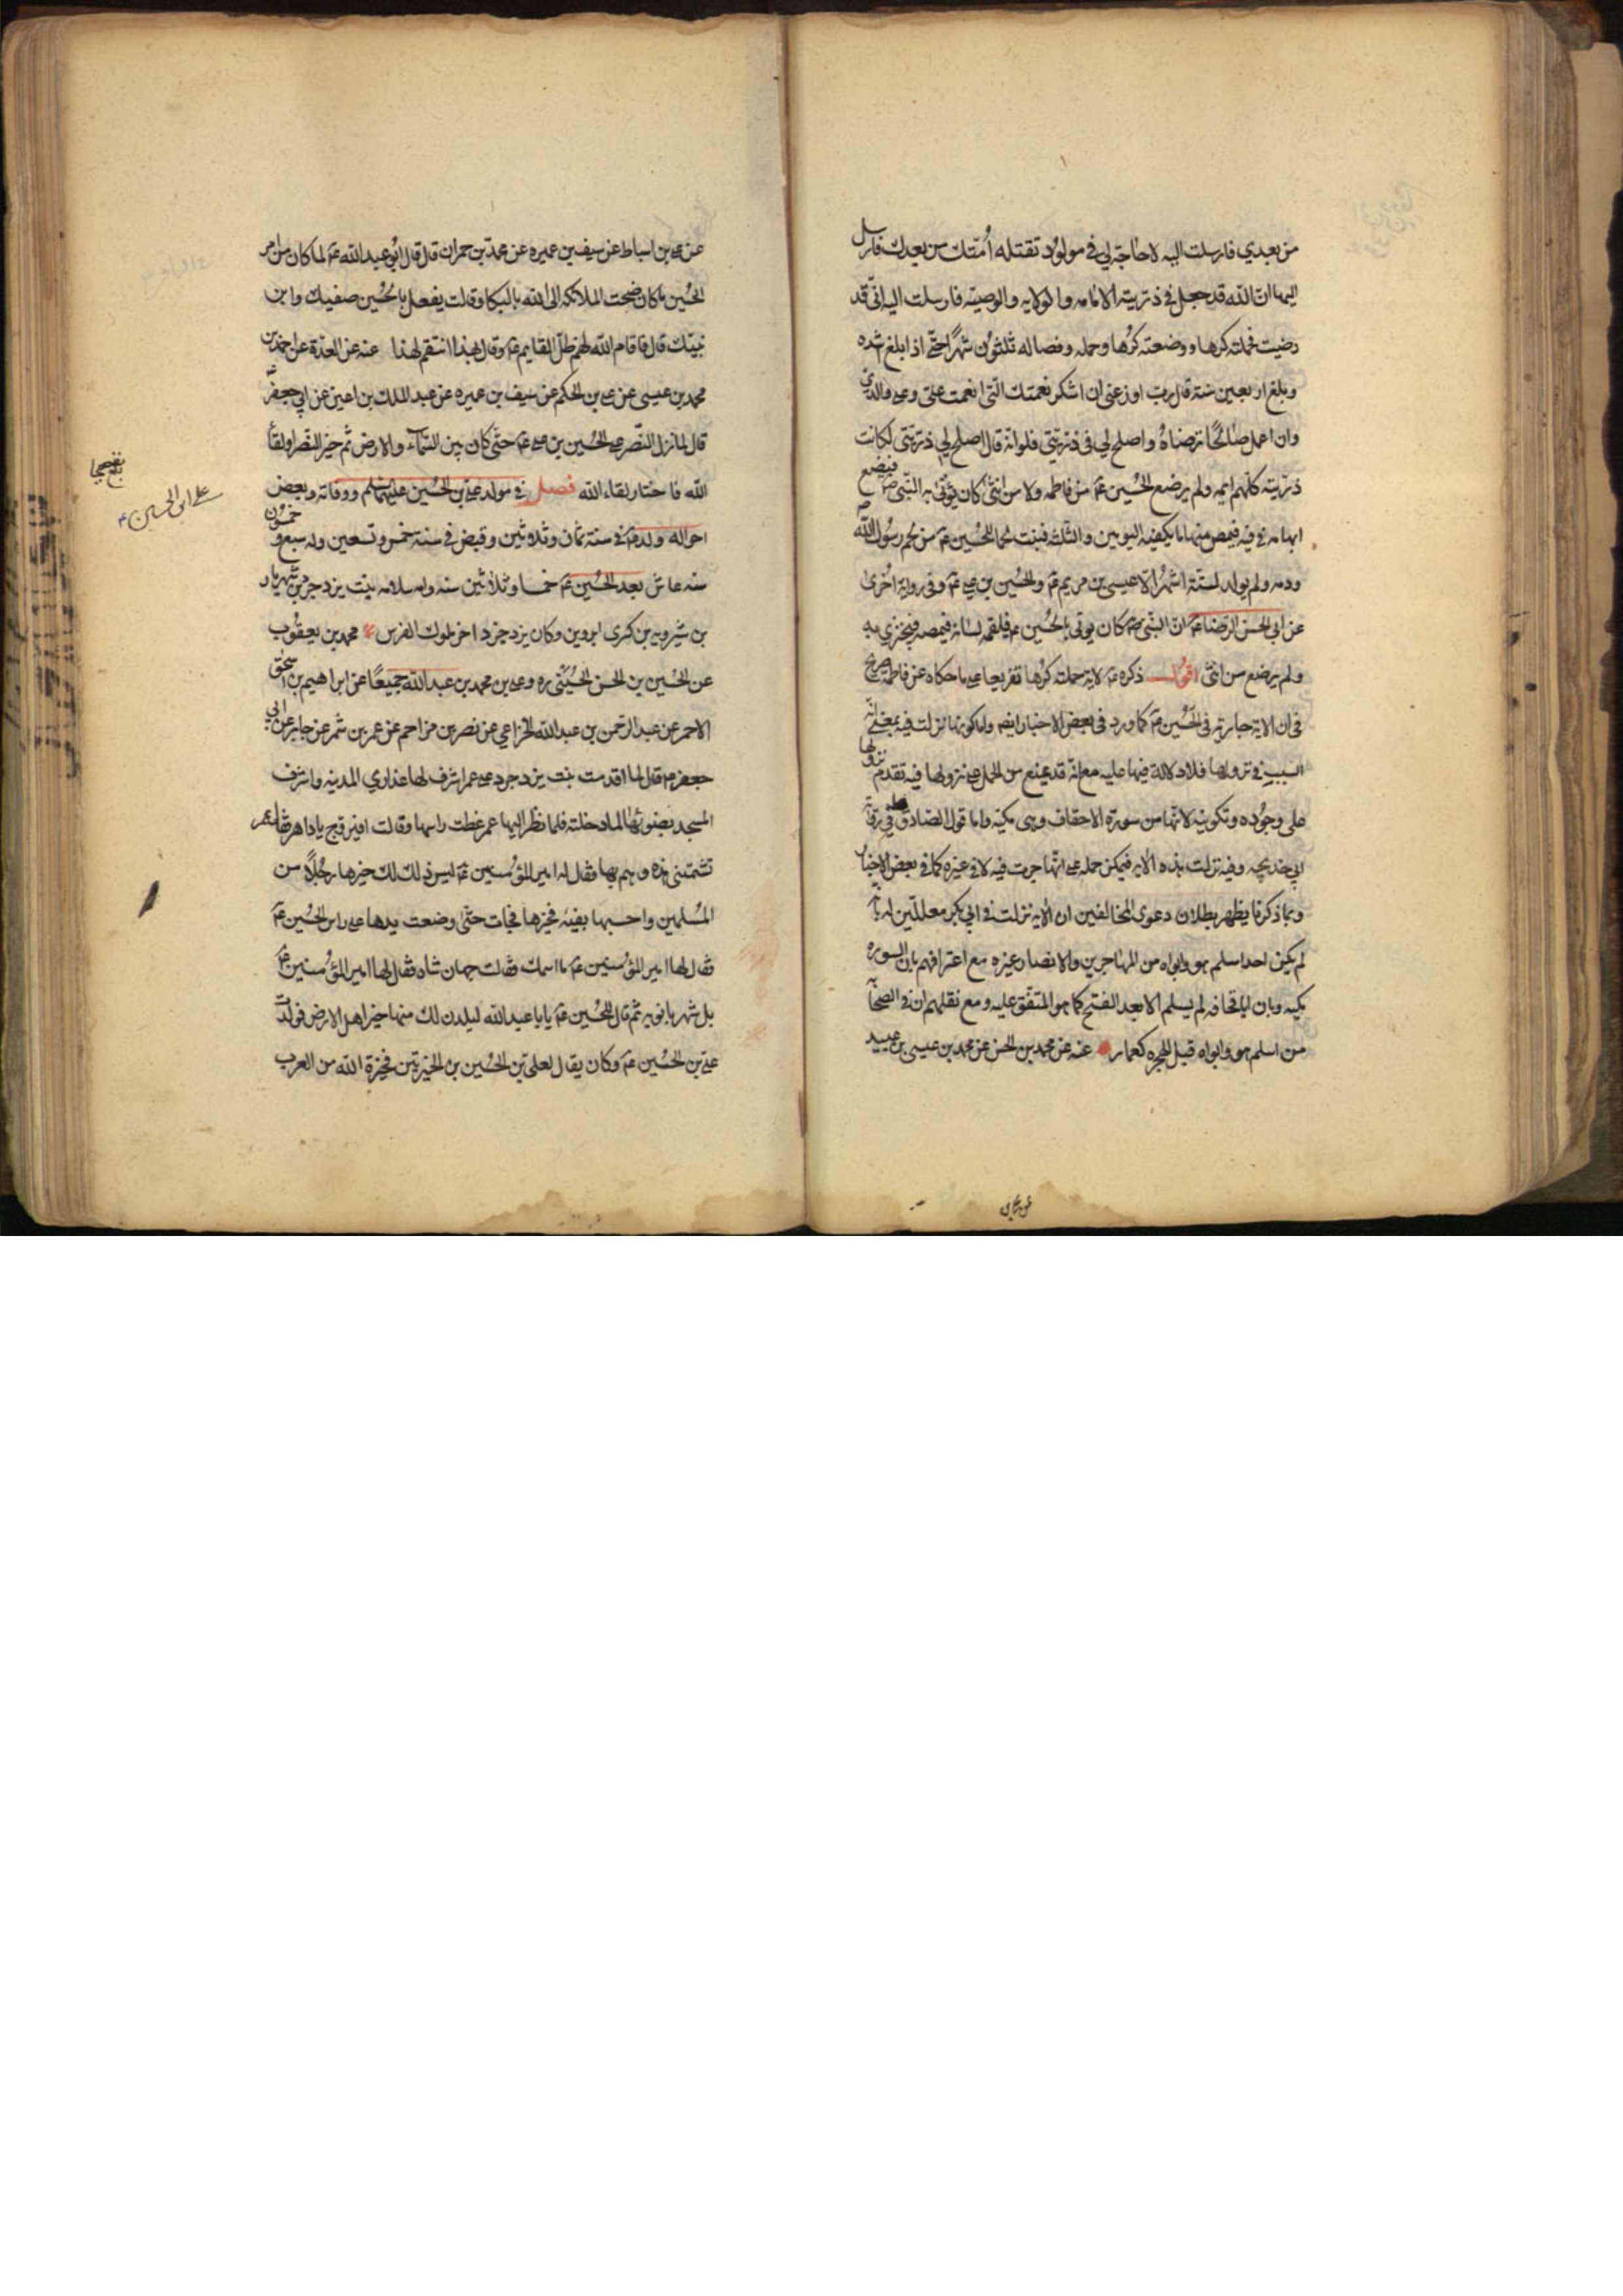 من بعدي فارسلت اليه لا حاجة لي في مولود تقتله أمتك من بعدك فارسل
اليها ان الله قد جعل في ذريته الامامه والولايه والوصيه فارسلت اليه اني قد
رضيت فحملته كرها ووضعته كرها وحمله وفصاله ثلثون شهرا حتى اذا بلغ اشده
وبلغ اربعين سنة قال رب اوزعني ان اشكر نعمتك التي انعمت علي وعلى والدي
وان اعمل صالحا ترضاه واصلح لي في ذريتي فلو انه قال اصلح لي ذريتي لكانت
ذريته كلهم ايمه ولم يرضع الحسين عم من فاطمه ولا من انثى كان يؤتى به النبي ص فيضع
ابهامه في فيه فيمص منها ما يكفيه اليومين والثلثه فنبت لحما للحسين عم من لحم رسول الله ص
ودمه ولم يولد لستة اشهر الا عيسى بن مريم عم والحسين بن علي عم وفي رواية اخرى
عن ابي الحسن الرضا عم ان النبي ص كان يوتى بالحسين عم فيلقمه لسانه فيمصه فيجتزي به
ولم يرضع من انثى اقول ذكره عم لاية حملته كرها تفريعا على ما حكاه عن فاطمة صريح
في ان الاية جارية في الحسين عم كما ورد في بعض الاخبار ايضا واما كونها نزلت فيه بمعنى انه
السبب في نزولها فلا دلالة فيها عليه مع انه قد يمنع من الحمل على نزولها فيه تقدم نزولها
على وجوده وتكونه لانها من سورة الاحقاف وهي مكية واما قول الصادق في رواية
ابي خديجه وفيه نزلت هذه الايه فيمكن حمله على انها جرت فيه لا في غيره كما في بعض الاخبار
وبما ذكرنا يظهر بطلان دعوى المخالفين ان الايه نزلت في ابي بكر معللين له بانه
لم يكن احد اسلم هو وابواه من المهاجرين والانصار غيره مع اعترافهم بان السوره
مكيه وبان ابا قحافه لم يسلم الا بعد الفتح كما هو المتفق عليه ومع نقلهم ان في الصحابة
من اسلم هو وابواه قبل الهجره كعمار عنه عن محمد بن الحسن عن محمد بن عيسى بن عبيد
عن علي بن اسباط عن سيف بن عميره عن محمد بن حمران قال قال ابو عبد الله عم لما كان من امر
الحسين ما كان ضجت الملائكه الى الله بالبكا وقالت يفعل بالحسين صفيك وابن
نبيك قال فاقام الله لهم ظل القايم عم وقال بهذا انتقم لهذا عنه عن العدة عن احمد بن
محمد بن عيسى عن علي بن الحكم عن سيف بن عميره عن عبد الملك بن اعين عن ابي جعفر عم
قال لما نزل النصر على الحسين بن علي عم حتى كان بين السماء والارض ثم خير النصر او لقاء
الله فاختار لقاء الله فصل في مولد علي بن الحسين عليهما السلام ووفاته وبعض
احواله ولد عم في سنة ثمان وثلاثين وقبض في سنة خمس وتسعين وله سبع وخمسون
سنه عاش بعد الحسين عم خمسا وثلاثين سنه وامه سلامه بنت يزدجرد بن شهريار
بن شيرويه بن كسرى ابرويز وكان يزدجرد اخر ملوك الفرس محمد بن يعقوب
عن الحسين بن الحسن الحسيني ره وعلي بن محمد بن عبد الله جميعا عن ابراهيم بن اسحق
الاحمر عن عبد الرحمن بن عبد الله الخزاعي عن نصر بن مزاحم عن عمر بن شمر عن جابر عن ابي
جعفر عم قال لما اقدمت بنت يزدجرد على عمر اشرف لها عذاري المدينه واشرف
المسجد بضوئها لما دخلته فلما نظر اليها عمر غطت راسها وقالت افيروج باداهرمز فقال عمر
تشتمني هذه وهم بها فقال له امير المؤمنين عم ليس ذلك لك خيرها رجلا من
المسلمين واحسبها بفيئه فخيرها فجات حتى وضعت يدها على راس الحسين عم
فقال لها امير المؤمنين عم ما اسمك فقالت جهان شاه فقال لها امير المؤمنين عم
بل شهربانويه ثم قال للحسين عم يابا عبد الله ليلدن لك منها خير اهل الارض فولدت
علي بن الحسين عم وكان يقال لعلي بن الحسين بن الخيرتين فخيرة الله من العرب
علي ابن الحسين ع